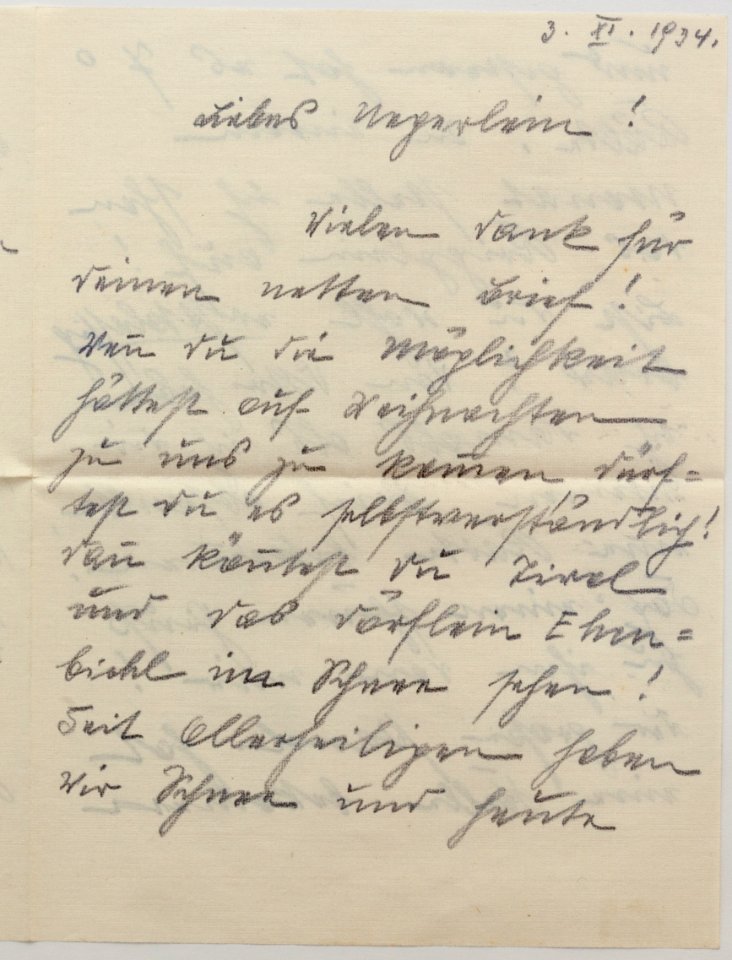 3. XI. 1934.
Liebes Negerlein!
Vielen Dank für
deinen netten Brief!
Weñ du die Möglichkeit
hättest auf Weihnachten
zu uns zu kom̄en dürf=
test du es selbstverständlich!
dañ köñtest du Tirol
und das Dörflein Ehen=
bichl im Schnee sehen!
Seit Allerheiligen haben
wir Schnee und heute